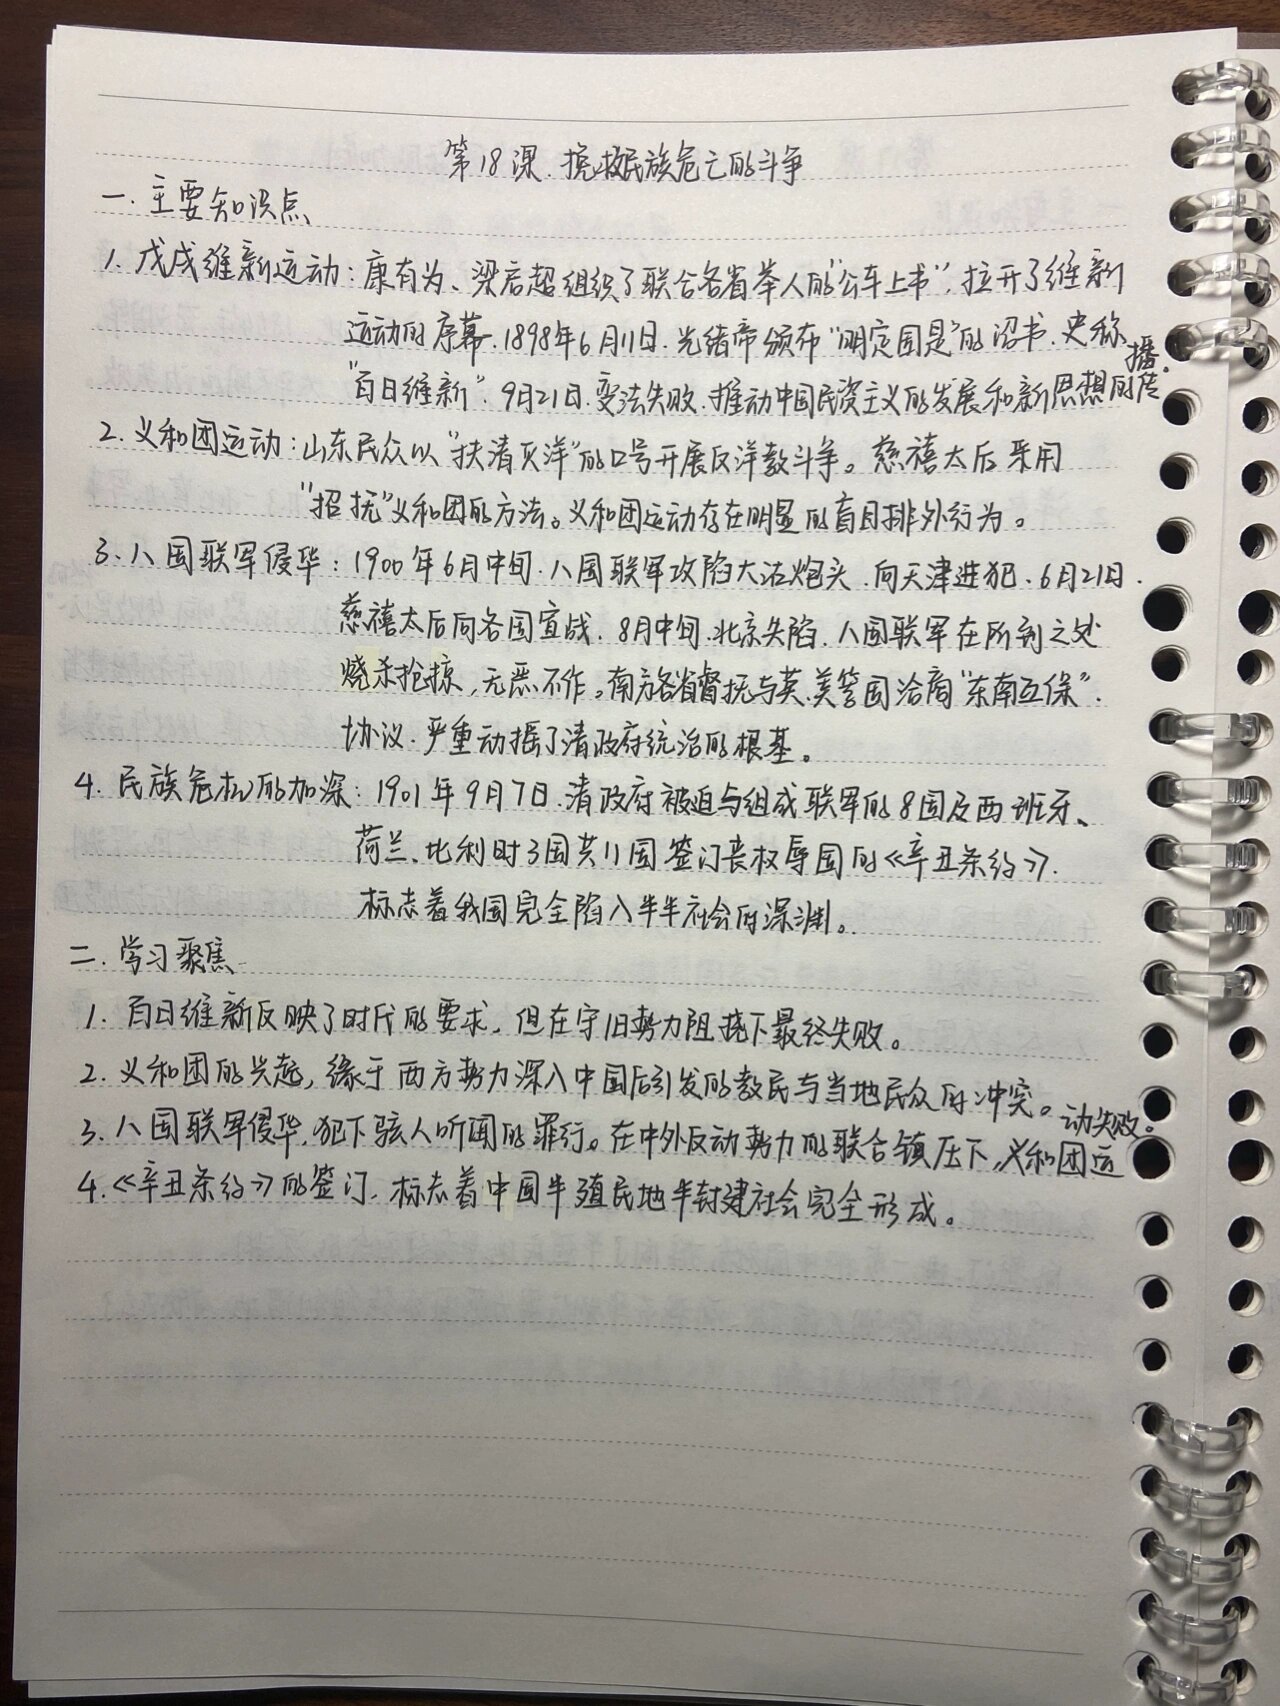 第18课.挽救民族危亡的斗争
一.主要知识点
1.戊戌维新运动:康有为、梁启超组织了联合各省举人的"公车上书",拉开了维新
运动的序幕.1898年6月11日.光绪帝颁布"明定国是"的诏书.史称
"百日维新".9月21日.变法失败.推动中国民资主义的发展和新思想的传播.
2.义和团运动:山东民众以"扶清灭洋"的口号开展反洋教斗争。慈禧太后采用
"招抚"义和团的方法。义和团运动存在明显的盲目排外行为。
3.八国联军侵华:1900年6月中旬.八国联军攻陷大沽炮头.向天津进犯.6月21日.
慈禧太后向各国宣战.8月中旬.北京失陷.八国联军在所到之处
烧杀抢掠,无恶不作。南方各省督抚与英.美等国洽商"东南互保".
协议.严重动摇了清政府统治的根基。
4.民族危机的加深:1901年9月7日.清政府被迫与组成联军的8国及西班牙、
荷兰、比利时3国共11国签订丧权辱国的《辛丑条约》.
标志着我国完全陷入半半社会的深渊。
二.学习聚焦
1.百日维新反映了时代的要求,但在守旧势力阻挠下最终失败。
2.义和团的兴起,缘于西方势力深入中国后引发的教民与当地民众的冲突。
3.八国联军侵华,犯下骇人听闻的罪行。在中外反动势力的联合镇压下,义和团运动失败。
4.《辛丑条约》的签订.标志着中国半殖民地半封建社会完全形成。